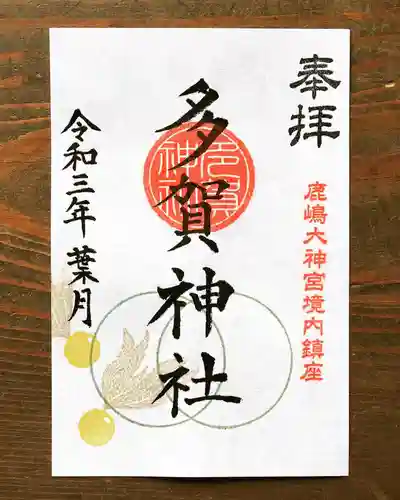 奉拝
鹿嶋大神宮境内鎮座
多賀神社
多賀神社
令和三年葉月